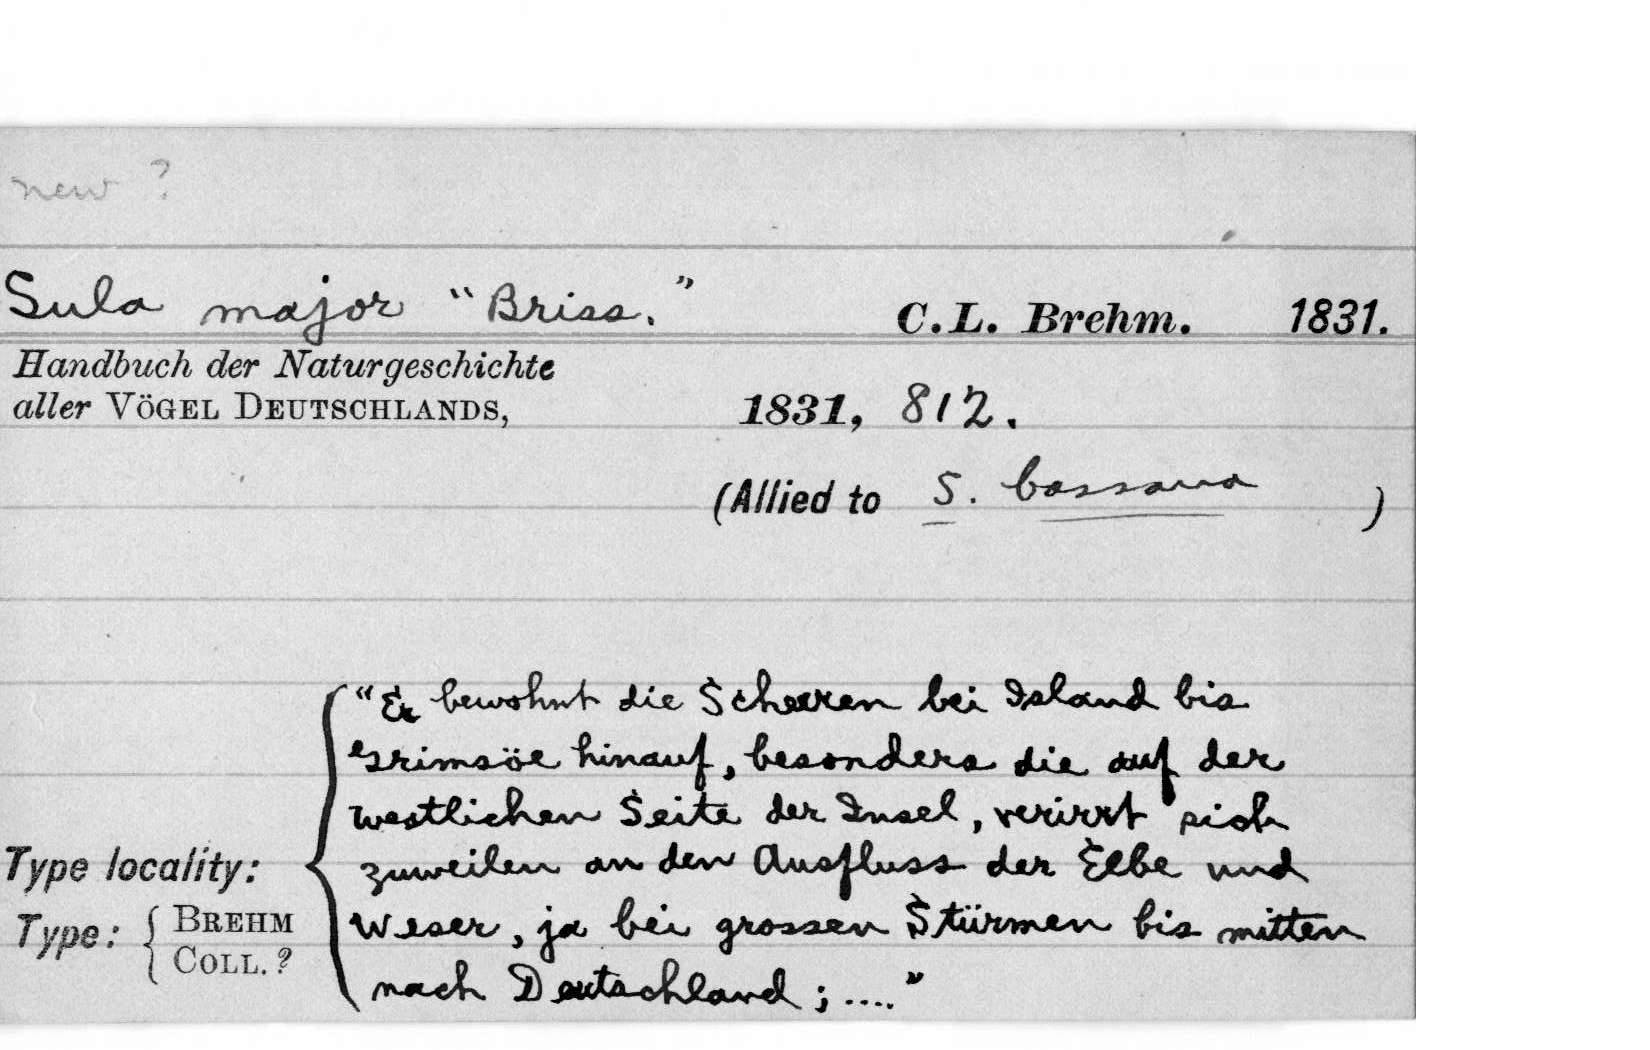 new ?
Sula major "Briss." C.L. Brehm. 1831.
Handbuch der Naturgeschichte
aller VÖGEL DEUTSCHLANDS, 1831, 812.
(Allied to S. bassana )
"Er bewohnt die Scheeren bei Island bis
Grimsöe hinauf, besonders die auf der
westlichen Seite der Insel, verirrt sich
Type locality: zuweilen an den Ausfluss der Elbe und
Type: { BREHM COLL. ? Weser, ja bei grossen Stürmen bis mitten
nach Deutschland ; ...."